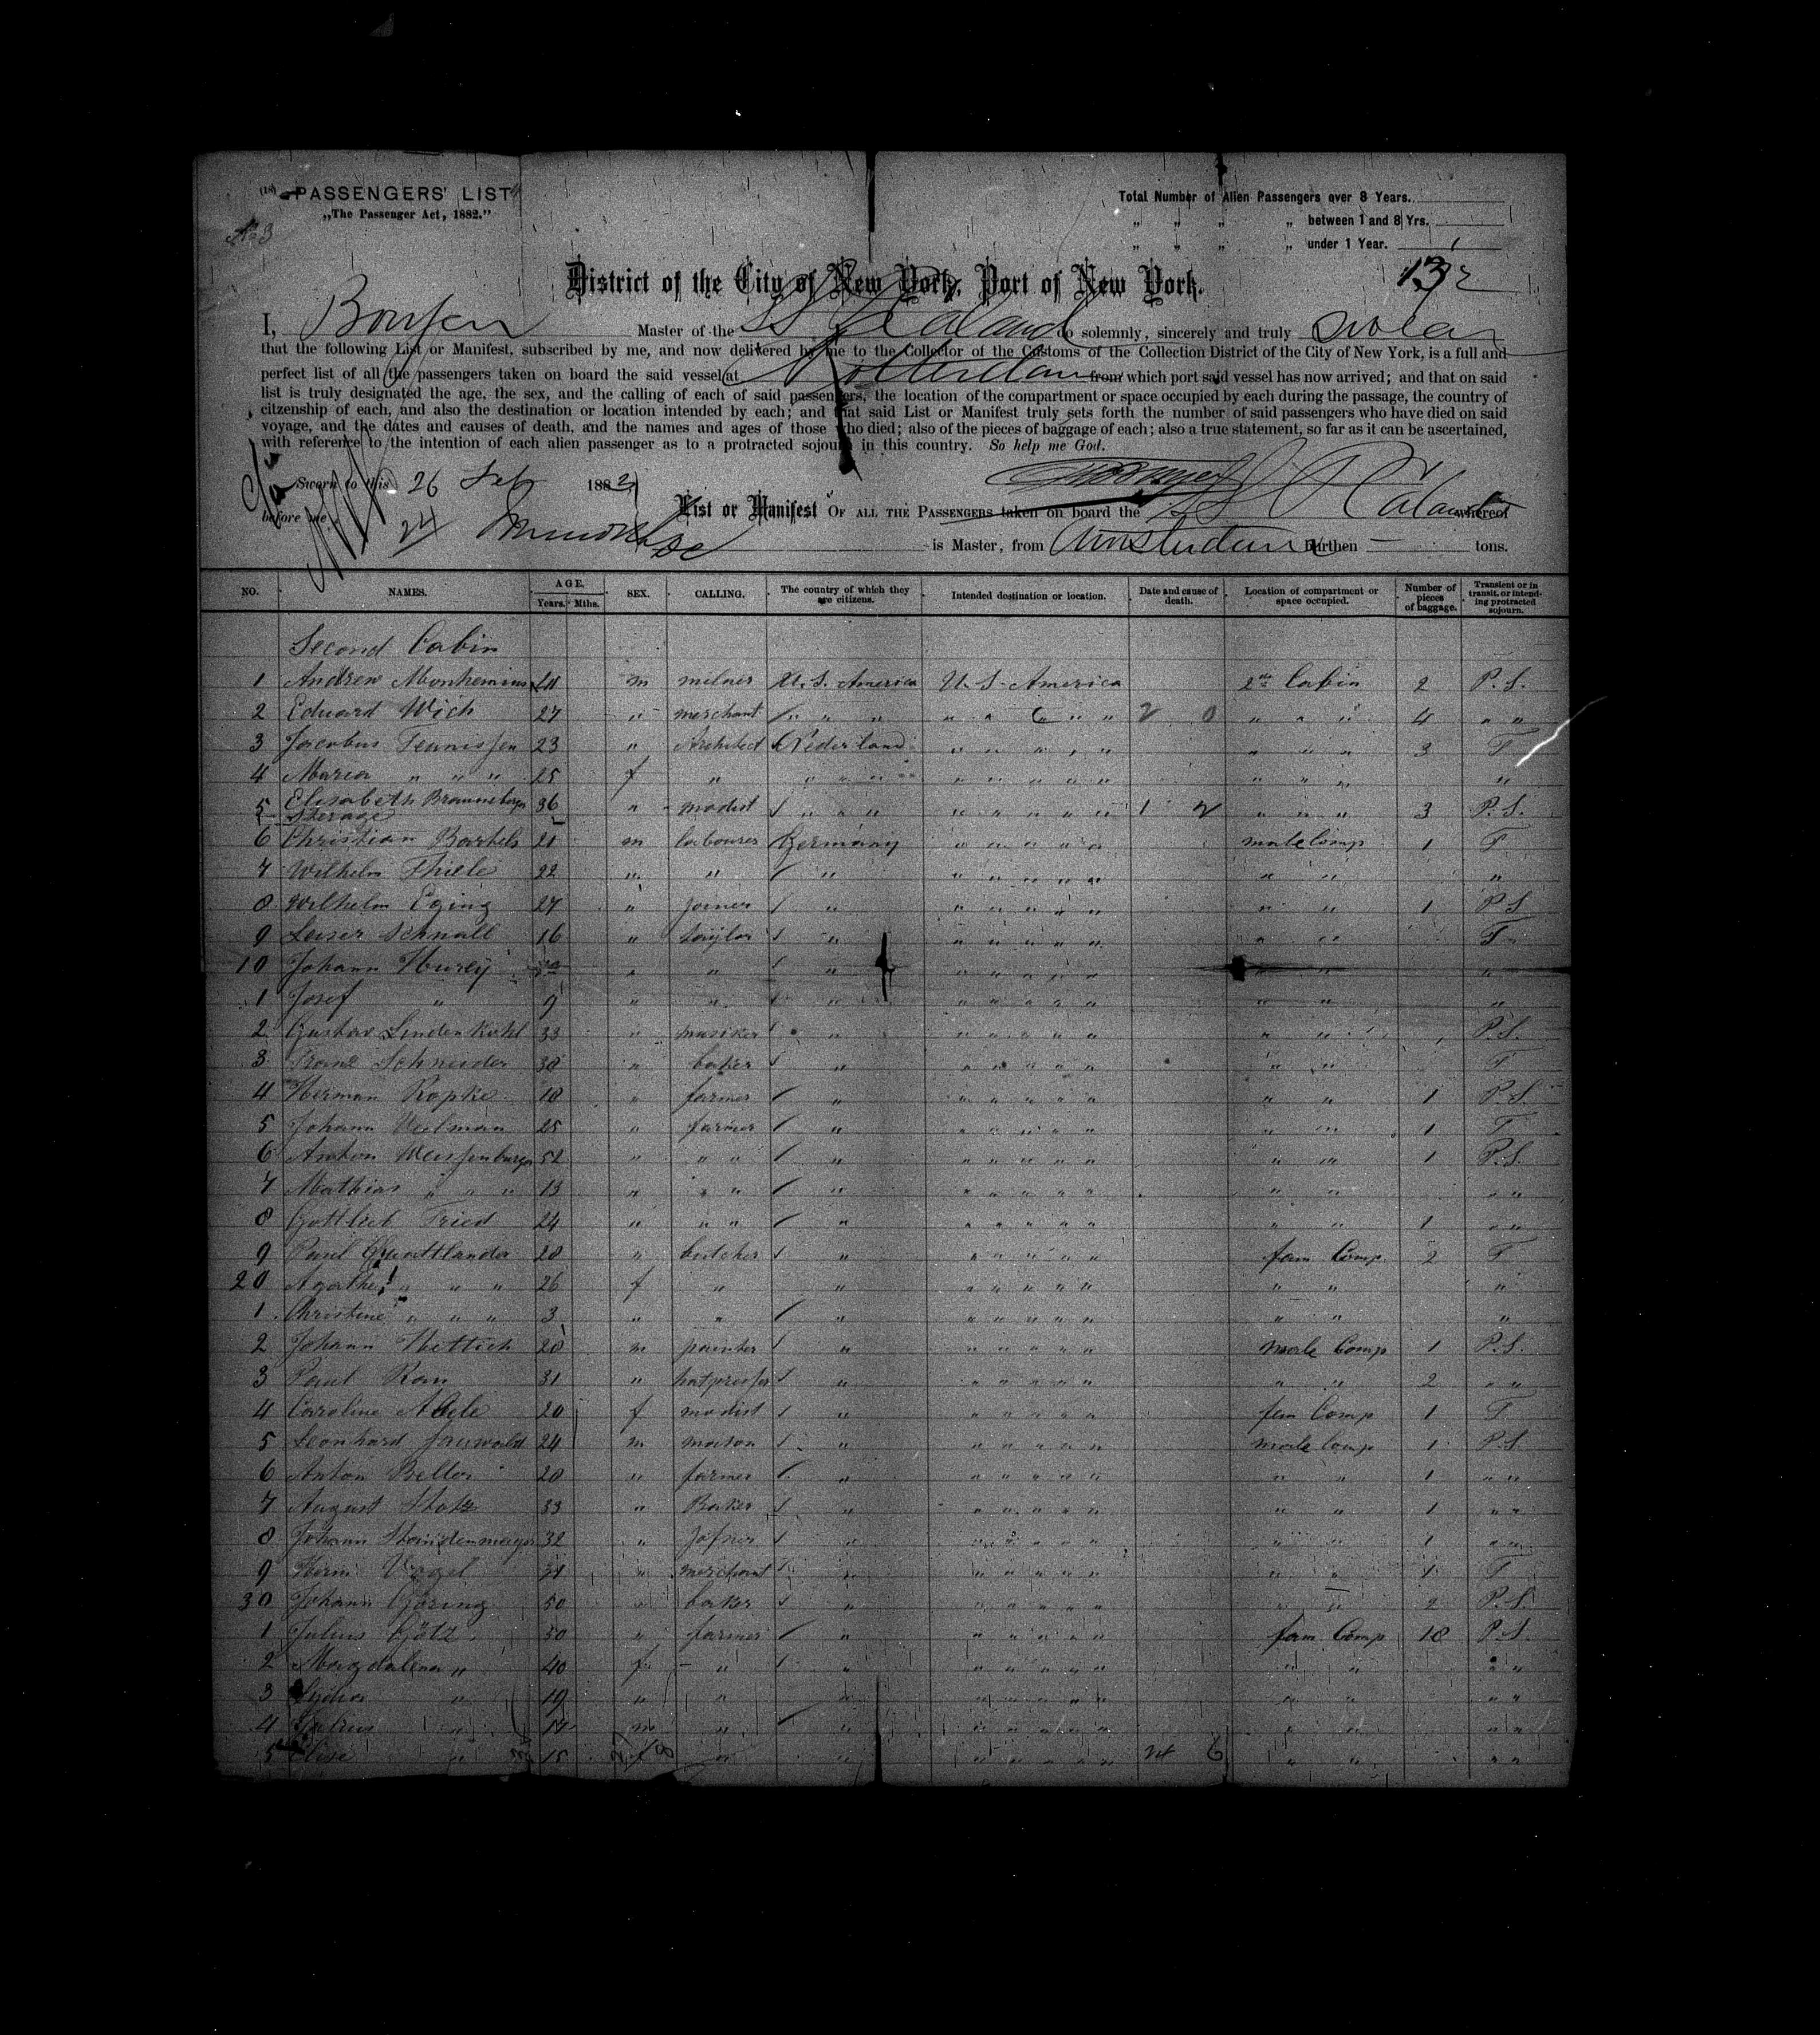 (18) PASSENGERS' LIST
„The Passenger Act, 1882."
No 3
Total Number of Alien Passengers over 8 Years.
„ „ „ „ between 1 and 8 Yrs.
„ „ „ „ under 1 Year. 1
District of the City of New York, Port of New York.
I, Master of the SS do solemnly, sincerely and truly swear
that the following List or Manifest, subscribed by me, and now delivered by me to the Collector of the Customs of the Collection District of the City of New York, is a full and
perfect list of all the passengers taken on board the said vessel at Rotterdam from which port said vessel has now arrived; and that on said
list is truly designated the age, the sex, and the calling of each of said passengers, the location of the compartment or space occupied by each during the passage, the country of
citzenship of each, and also the destination or location intended by each; and that said List or Manifest truly sets forth the number of said passengers who have died on said
voyage, and the dates and causes of death, and the names and ages of those who died; also of the pieces of baggage of each; also a true statement, so far as it can be ascertained,
with reference to the intention of each alien passenger as to a protracted sojourn in this country. So help me God.
Sworn to this 26 Feb 188
before me 24
List or Manifest OF ALL THE PASSENGERS taken on board the SS whereof
is Master, from Amsterdam Burthen — tons.
NO. NAMES. AGE. Years. Mths. SEX. CALLING. The country of which they are citizens. Intended destination or location. Date and cause of death. Location of compartment or space occupied. Number of pieces of baggage. Transient or in transit, or intending protracted sojourn.
Second Cabin
1 Andrew m U.S. America U.S. America 2nd Cabin 2 P.S.
2 Eduard Wich 27 " merchant " " " " " " " " " " " 4 " "
3 Jacobus Teunissen 23 " Architect Nederland " " " " " " " " 3 T
4 Maria " " " 25 f " " " " " " " " " " " " "
5 Elisabeth 36 " modist " " " " " " " " " " " 3 P.S.
Sterage
6 Christian Bartels m labourer Germany " " " " " male Comp 1 T
7 Wilhelm Thiele 22 " " " " " " " " " " "
8 Wilhelm Eging 27 " joiner " " " " " " " " 1 P.S.
9 Leiser Schnall 16 " taylor " " " " " " " " T
10 Johann " " " " " " " " " " "
1 Josef " 9 " " " " " " " " " " "
2 Gustav Lindenkohl 33 " musiker " " " " " " " " P.S.
3 Franz Schneider 30 " baker " " " " " " " " T
4 Herman Ropke 18 " farmer " " " " " " " " 1 P.S.
5 Johann 25 " farmer " " " " " " " " 1 T
6 Anton Weissenburger 52 " " " " " " " " " " " 1 P.S.
7 Mathias " " " 13 " " " " " " " " " " " " "
8 Gottlieb Fried 24 " " " " " " " " " " " 1 " "
9 Paul Quattlander 28 " butcher " " " " " " fam Comp 2 T
20 Agathe " " " 26 f " " " " " " " " " "
1 Christine " " " 3 " " " " " " " " " " "
2 Johann Hettich 20 m painter " " " " " " male Comp 1 P.S.
3 Paul Rau 31 " hatpresser " " " " " " " " 2 " "
4 Caroline Abele 20 f modist " " " " " " fem Comp 1 T
5 Leonhard 24 m mason " " " " " " male Comp 1 P.S.
6 Anton Beller 20 " farmer " " " " " " " " 1 " "
7 August 33 " Baker " " " " " " " " 1 " "
8 Johann 32 " " " " " " " " " 1 " "
9 Vogel " merchant " " " " " " " " 1 T
30 Johann Göring 50 " baker " " " " " " " " 2 P.S.
1 Julius Götz 50 " farmer " " " " " " fam Comp 18 P.S.
2 Magdalena " 40 f " " " " " " " " " " "
3 " 19 " " " " " " " " " " " "
4 Julius " 14 m " " " " " " " " " " "
5 " 15 f " " " " " " " " " " "